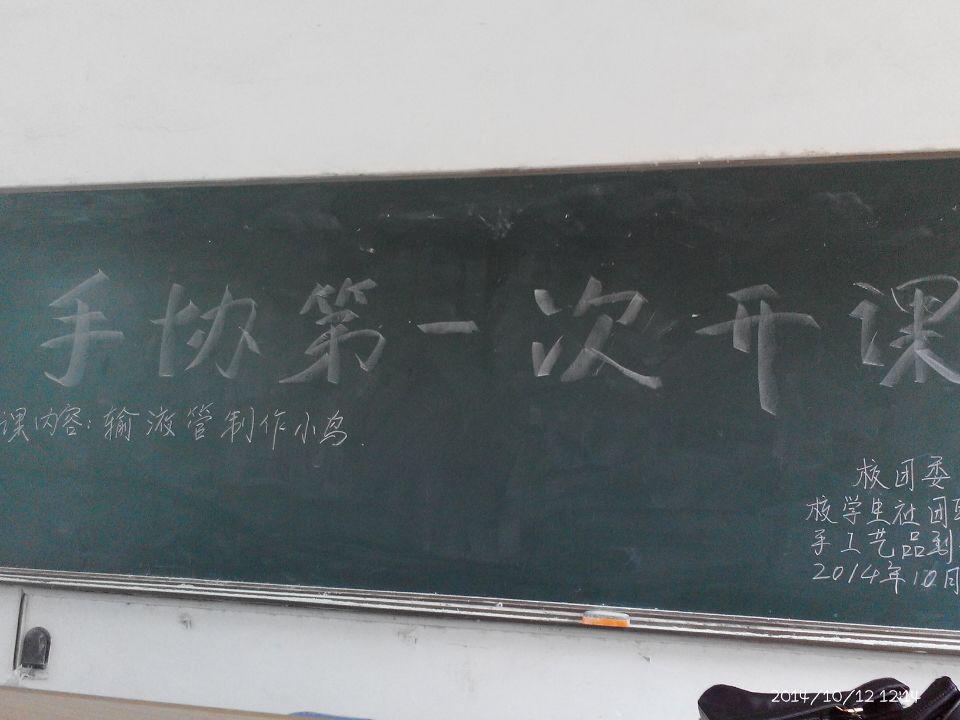 手协第一次开课
课内容:输液管制作小鸟.
校团委
校学生社团
手工艺品
2014年10月
2014/10/12 12:14